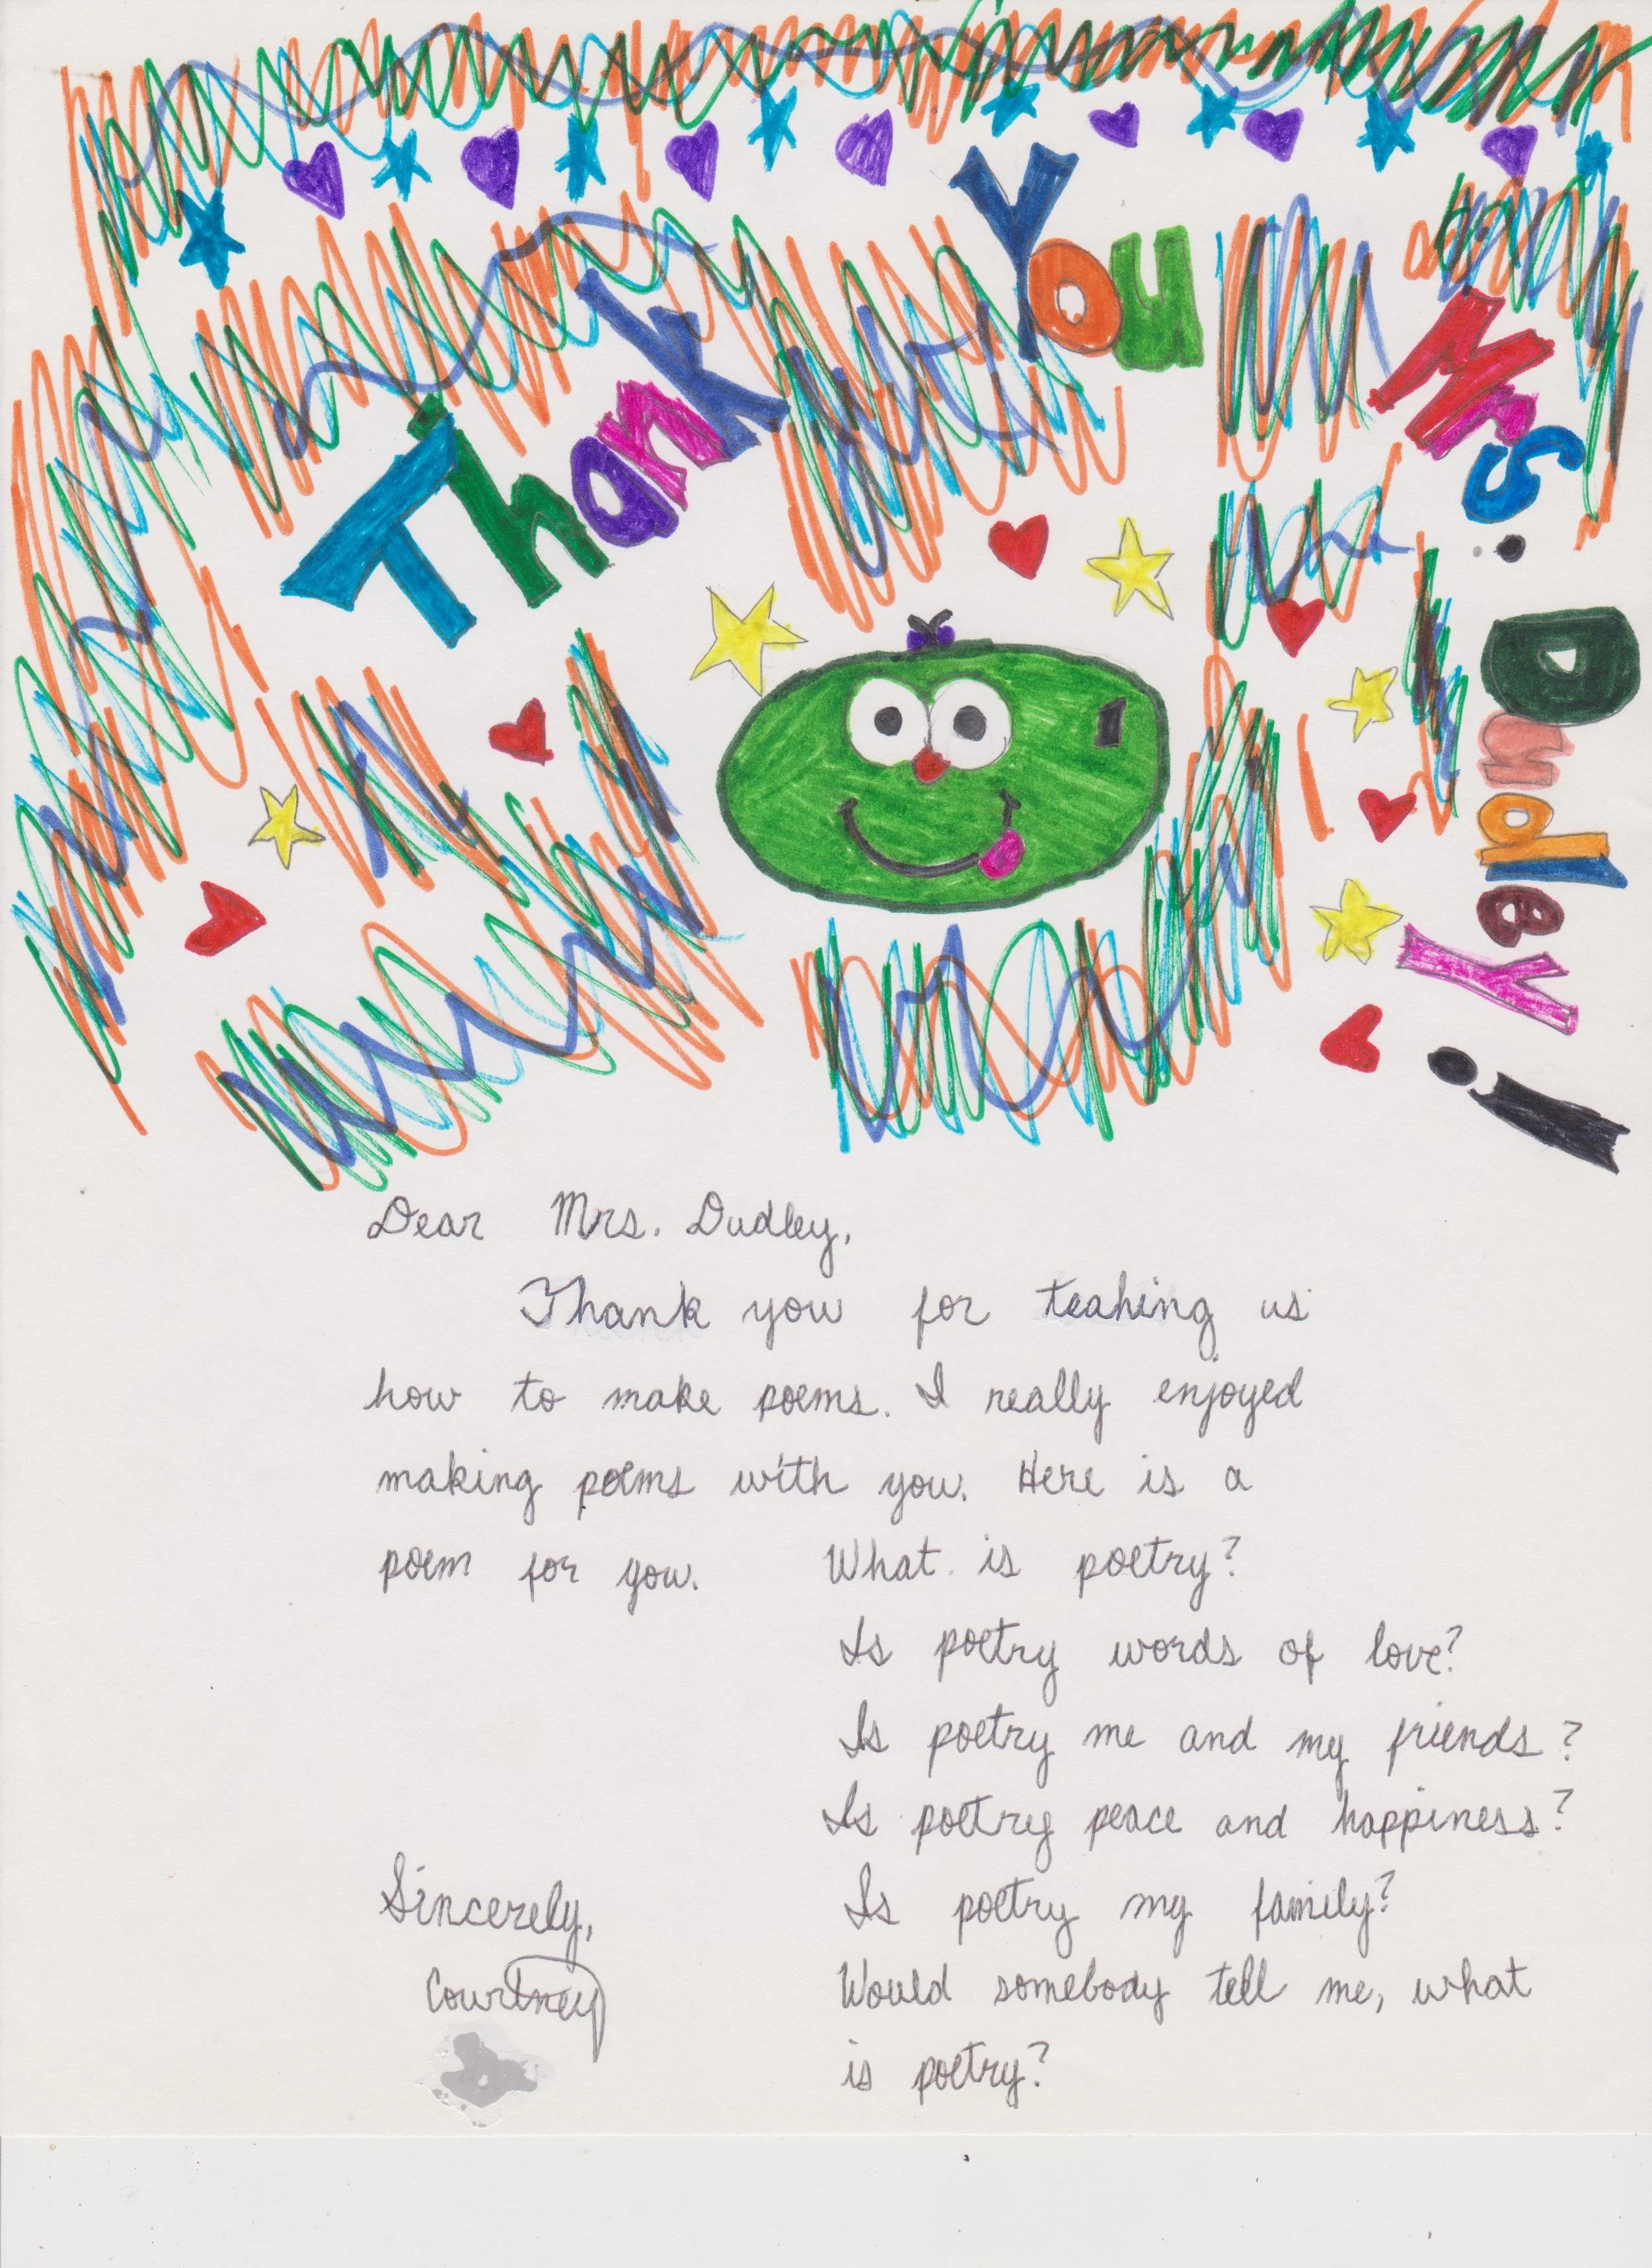 Thank You Mrs. Dudley!
Dear Mrs. Dudley,
Thank you for teahing us
how to make poems. I really enjoyed
making poems with you. Here is a
poem for you.
What is poetry?
Is poetry words of love?
Is poetry me and my friends?
Is poetry peace and happiness?
Is poetry my family?
Would somebody tell me, what
is poetry?
Sincerely,
Courtney